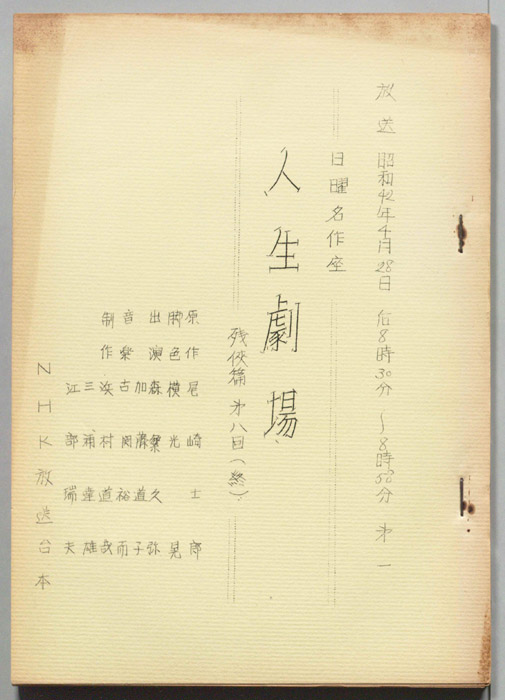 放送 昭和42年4月28日 后8時30分〜8時50分 オ一
日曜名作座
人生劇場
残侠篇 オ八回(終)
原作 尾崎士郎
脚色 横光晃
出演 森繁久弥
加藤道子
音楽 古関裕而
制作 浜村道哉
三浦達雄
江部瑞夫
NHK放送台本